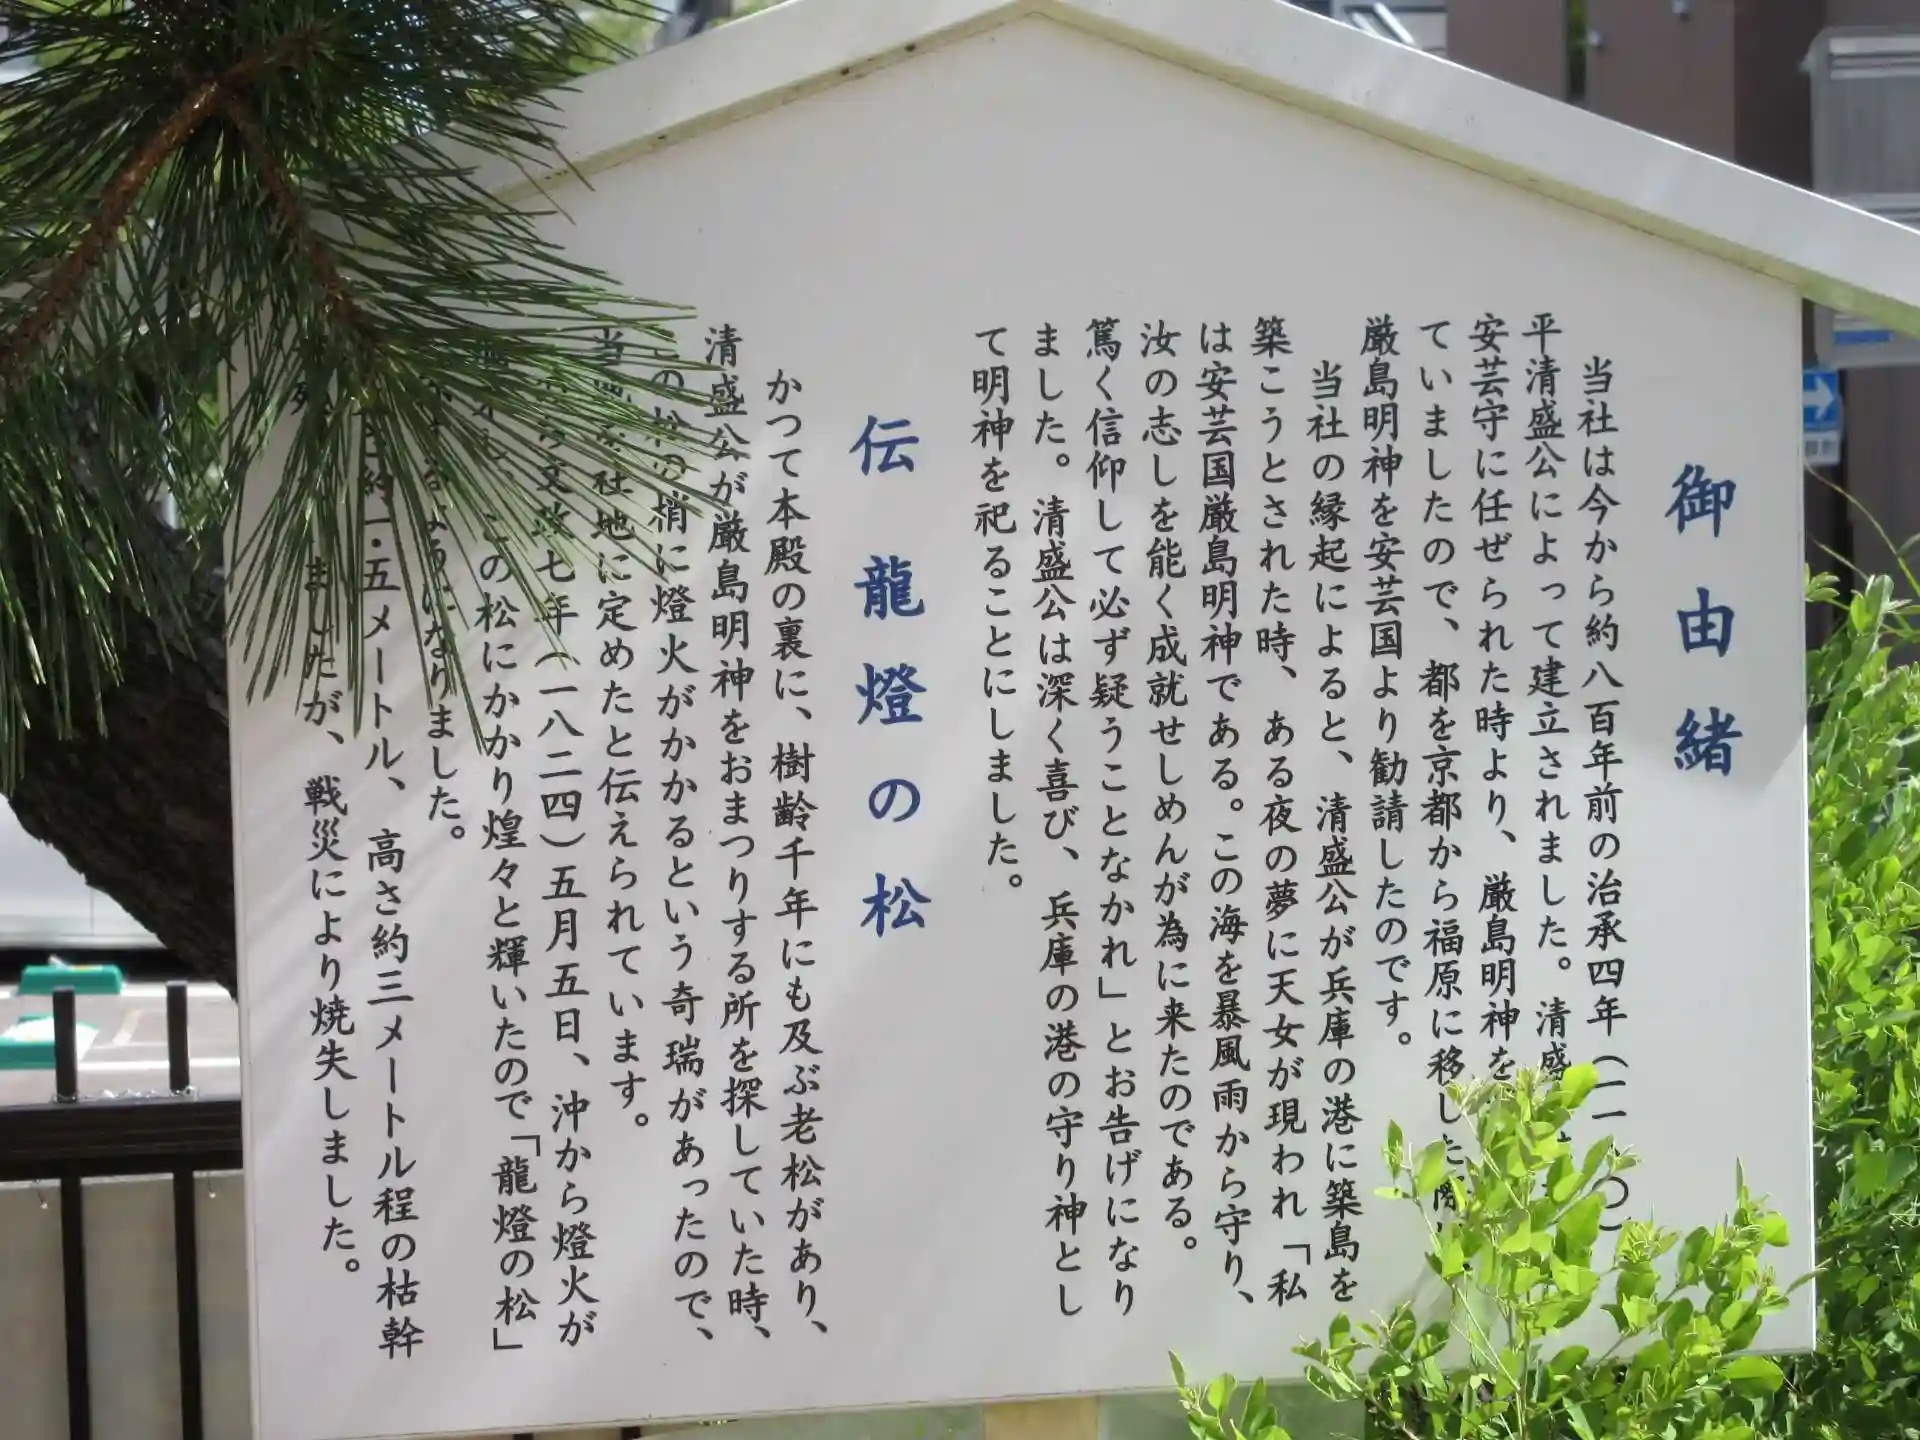 御由緒
当社は今から約八百年前の治承四年(一一八〇)
平清盛公によって建立されました。清盛
安芸守に任ぜられた時より、厳島明神を
ていましたので、都を京都から福原に移した際に
厳島明神を安芸国より勧請したのです。
当社の縁起によると、清盛公が兵庫の港に築島を
築こうとされた時、ある夜の夢に天女が現われ「私
は安芸国厳島明神である。この海を暴風雨から守り、
汝の志しを能く成就せしめんが為に来たのである。
篤く信仰して必ず疑うことなかれ」とお告げになり
ました。清盛公は深く喜び、兵庫の港の守り神とし
て明神を祀ることにしました。
伝龍燈の松
かつて本殿の裏に、樹齢千年にも及ぶ老松があり、
清盛公が厳島明神をおまつりする所を探していた時、
この松の梢に燈火がかかるという奇瑞があったので、
当地を社地に定めたと伝えられています。
文政七年(一八二四)五月五日、沖から燈火が
この松にかかり煌々と輝いたので「龍燈の松」
ようになりました。
約一・五メートル、高さ約三メートル程の枯幹
ましたが、戦災により焼失しました。